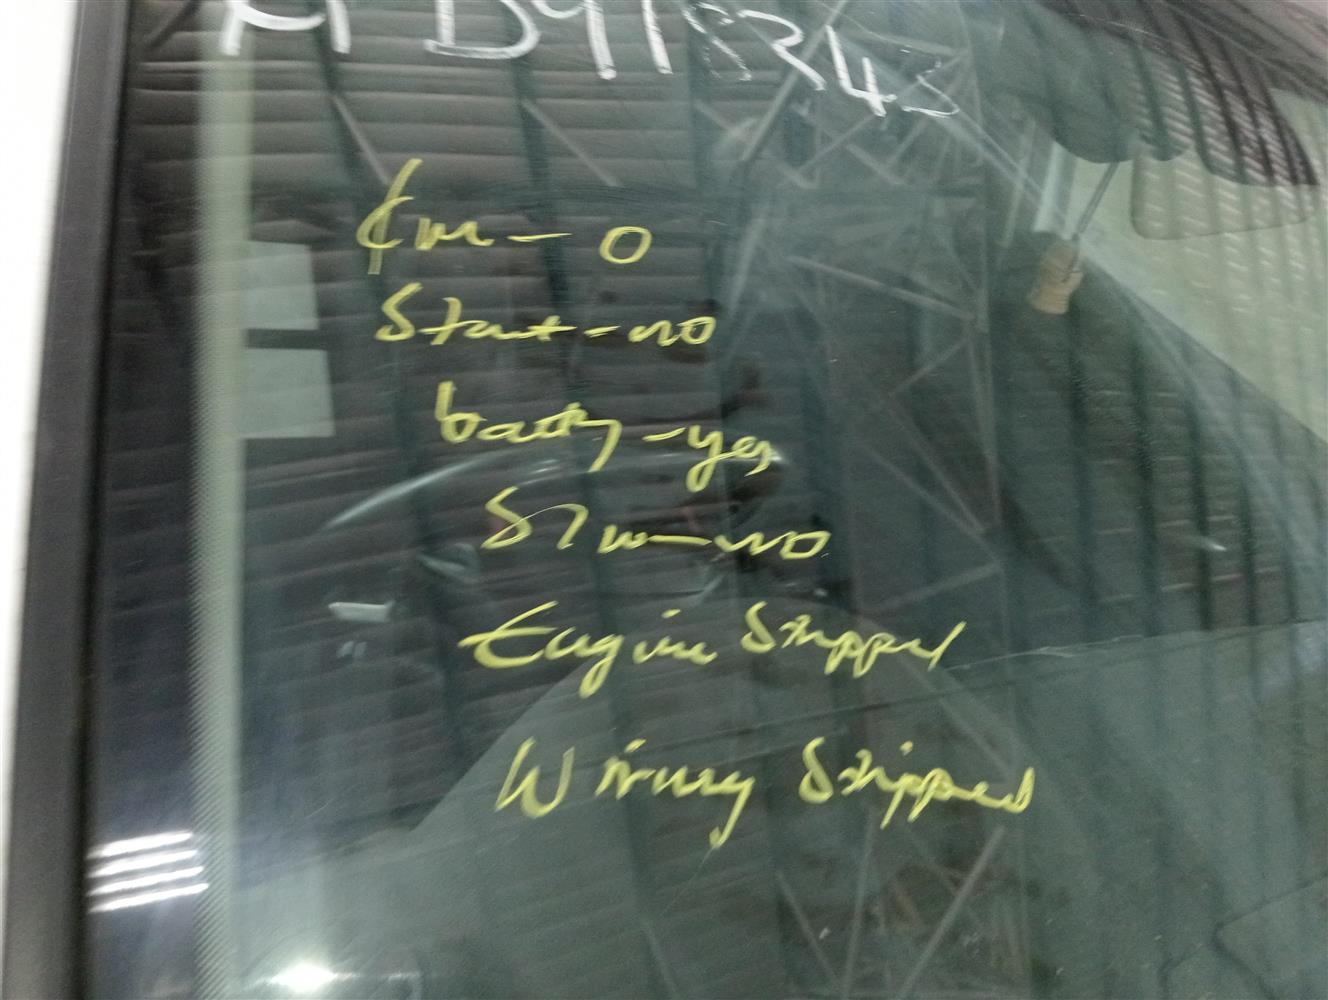 Km - 0
Start - no
batty - yes
S/w - no
Engine Stripped
Wiring Stripped